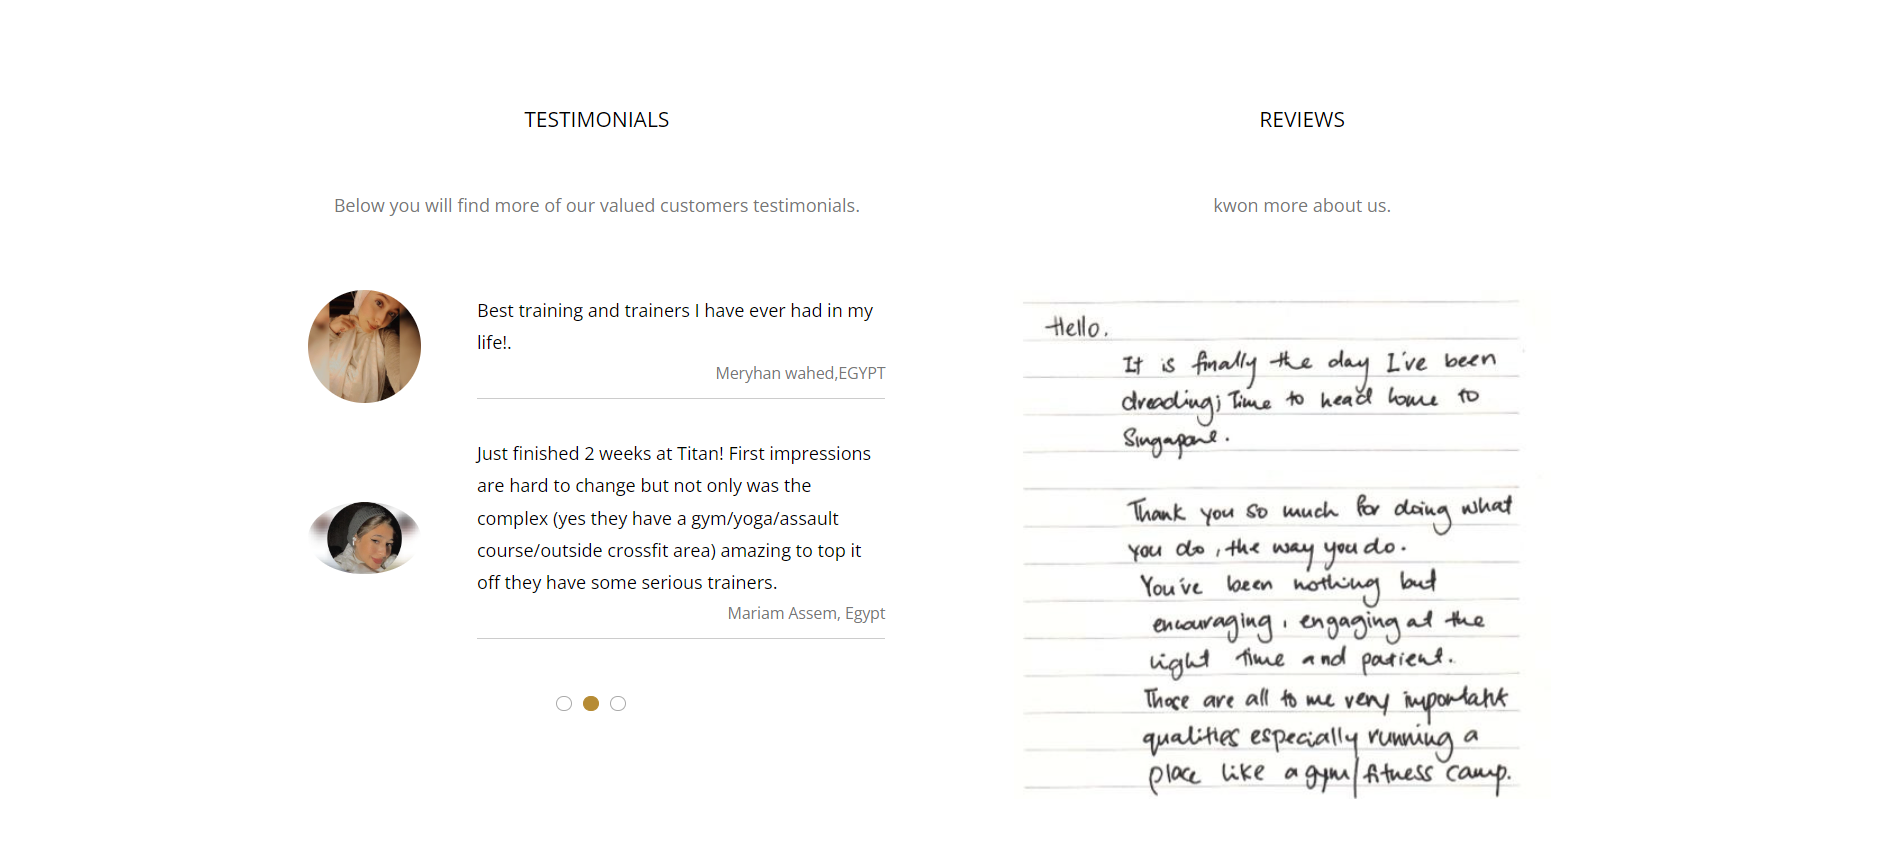 TESTIMONIALS
Below you will find more of our valued customers testimonials.
Best training and trainers I have ever had in my
life!.
Meryhan wahed,EGYPT
Just finished 2 weeks at Titan! First impressions
are hard to change but not only was the
complex (yes they have a gym/yoga/assault
course/outside crossfit area) amazing to top it
off they have some serious trainers.
Mariam Assem, Egypt
REVIEWS
kwon more about us.
Hello.
It is finally the day I've been
dreading; Time to head home to
Singapore.
Thank you so much for doing what
you do, the way you do.
You've been nothing but
encouraging, engaging at the
right time and patient.
Those are all to me very important
qualities especially running a
place like a gym/fitness camp.